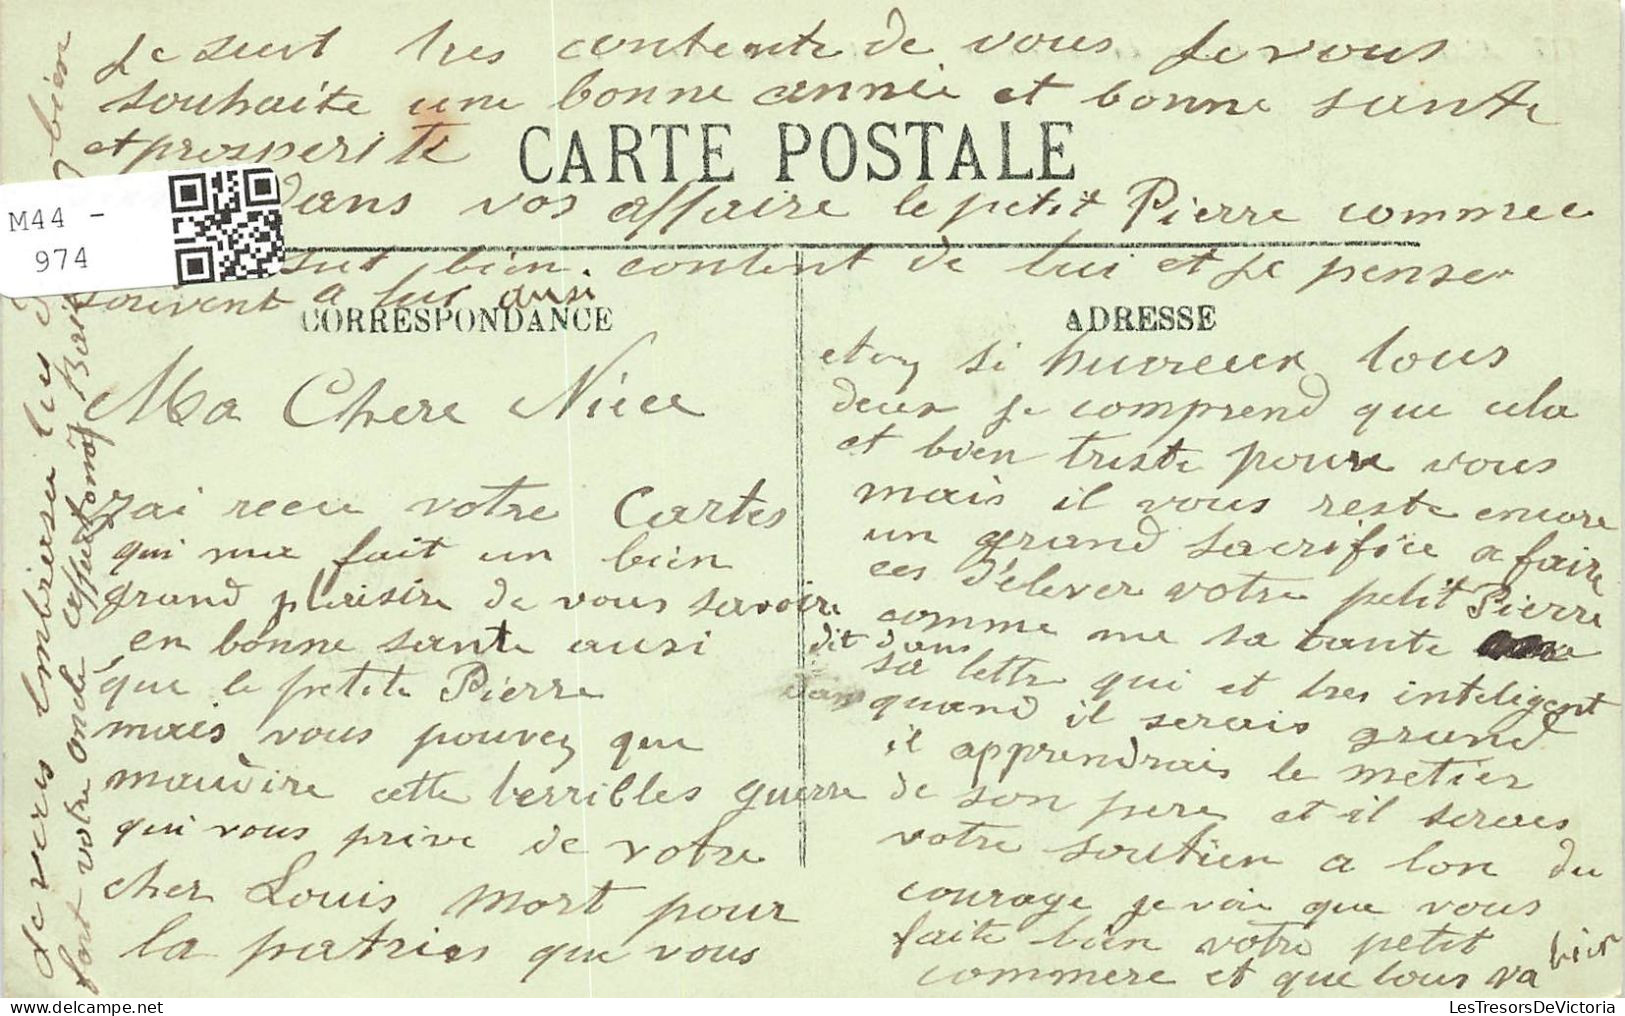 Je suit tres contente de vous Je vous
souhaite une bonne année et bonne sante
et prosperite
CARTE POSTALE
dans vos affaire le petit Pierre commee
suit bien content de lui et je pense
souvent a lui ausi
CORRESPONDANCE
ADRESSE
Ma Chere Niece
J'ai recu votre Cartes
qui me fait un bien
grand plaisir de vous savoire
en bonne sante ausi
que le petite Pierre
mais vous pouvez que
maudire cette terribles guerre
qui vous prive de votre
cher Louis mort pour
la patries que vous
etiez si hureux tous
deux je comprend que cela
et bien triste pour vous
mais il vous reste encore
un grand sacrifice a faire
ces d'elever votre petit Pierre
comme me sa tante
dit dans
sa lettre qui et tres inteligent
quand il serais grand
il apprendrais le metier
de son pere et il serais
votre soutien a lon du
courage je voi que vous
faite bien votre petit
commere et que tous va bien
de vers embrasse luy bien
fort votre oncle
M44 -
974
LesTresorsDeVictoria